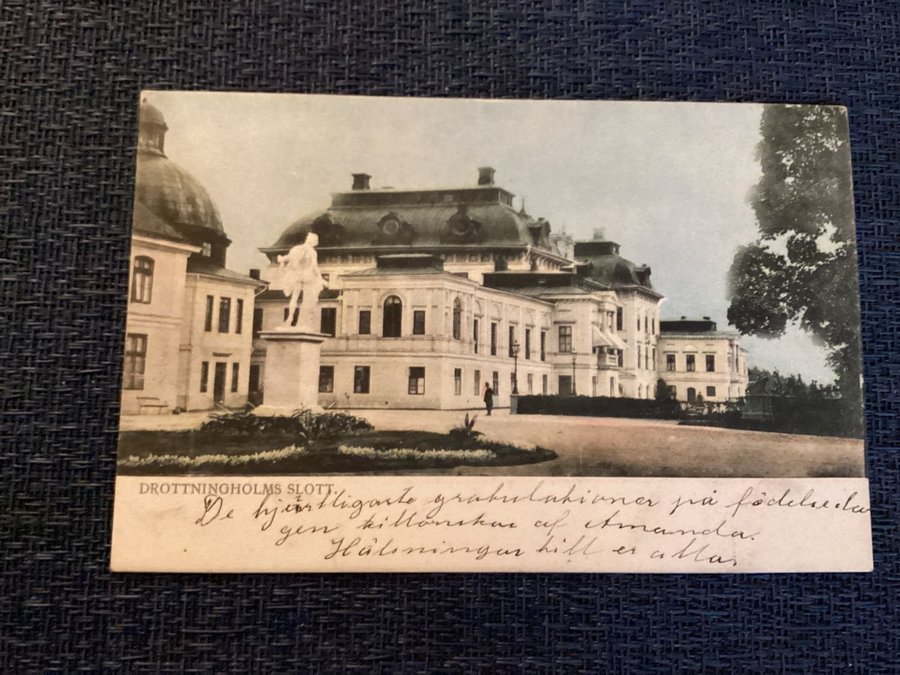 DROTTNINGHOLMS SLOTT.
De hjärtligaste gratulationer på födelseda
gen tillönskas af Amanda.
Hälsningar till er alla.